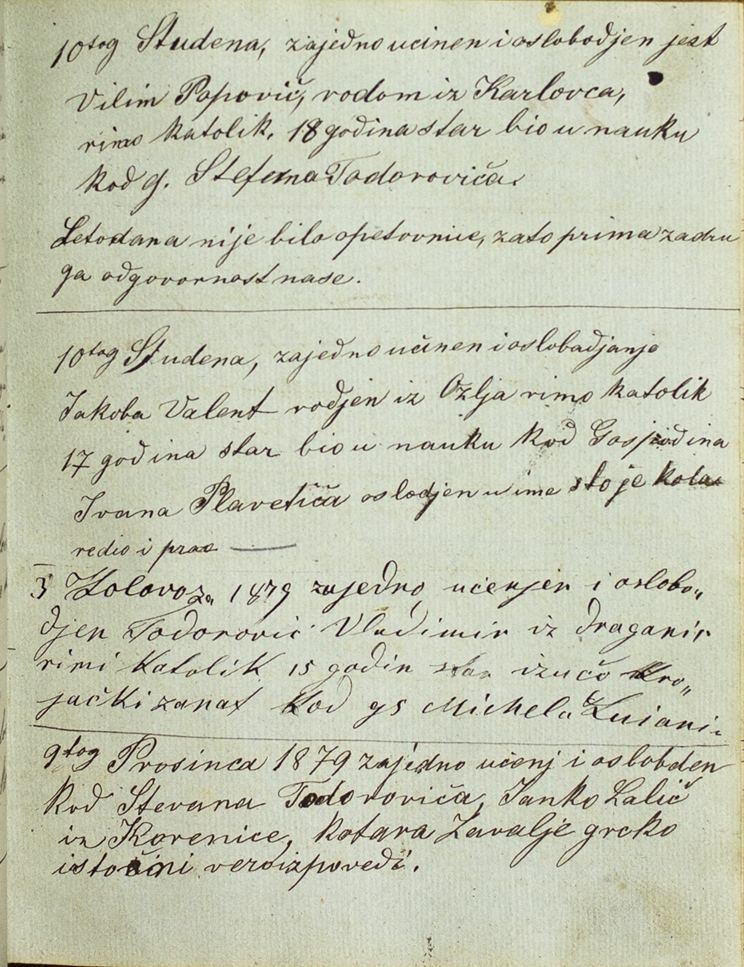 10tog Studena, zajedno učinen i oslobodjen jest
Vilim Popovič, rodom iz Karlovca,
rimo katolik. 18 godina star bio u nauku
kod g. Stefana Todoroviča.
Letodana nije bilo opetovnice, zato prima zadru
ga odgovornost nase.
10tog Studena, zajedno učinen i oslobadjanje
Jakoba Valent rodjen iz Ozlja rimo katolik
17 godina star bio u nauku kod Gospodina
Ivana Plavetiča oslodjen u ime sto je
redio i prao
3 Kolovoza 1879 zajedno učenjen i oslobo„
djen Todorovič Vladimir iz Draganić
rimi katolik 15 godin star izučo kro„
jački zanat kod gs Michela
9tog Prosinca 1879 zajedno učenj i oslobđen
kod Stevana Todoroviča, Janko Lalič
iz Korenice, kotara Zavalje grcko
istočini veroizpovedi.